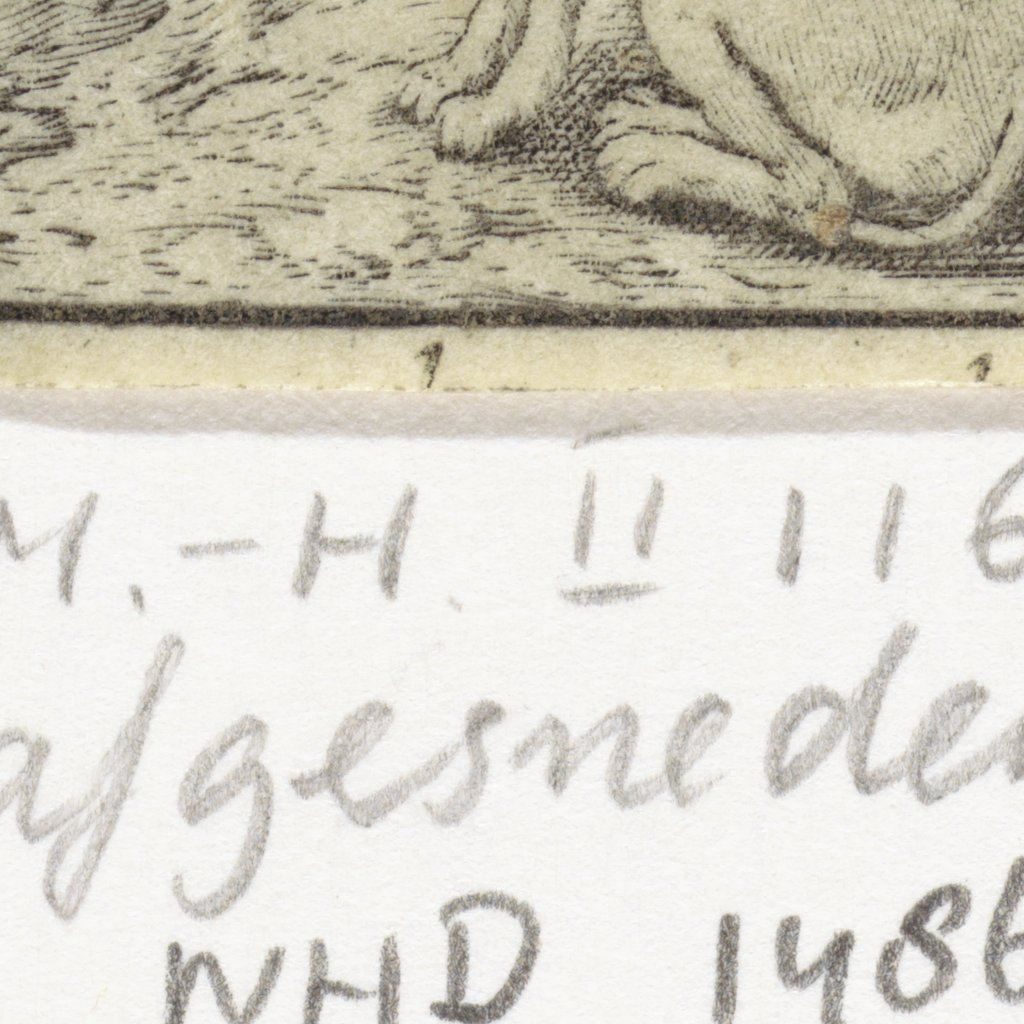 M.-H. II 116
afgesneden
NHD 1486